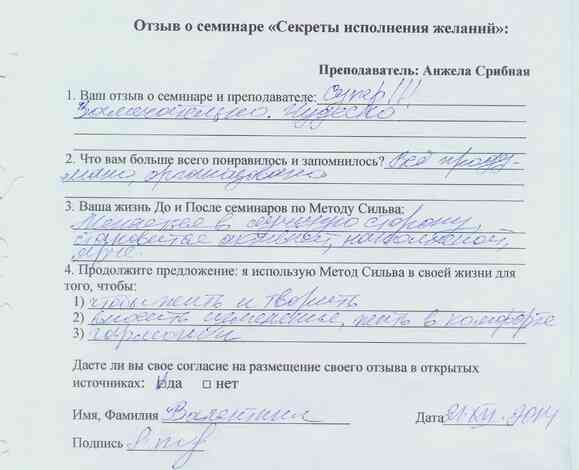 Отзыв о семинаре «Секреты исполнения желаний»:
Преподаватель: Анжела Срибная
1. Ваш отзыв о семинаре и преподавателе: Супер!!!
Замечательно. Чудесно
2. Что вам больше всего понравилось и запомнилось? Всё проду-
мано, организовано
3. Ваша жизнь До и После семинаров по Методу Сильва:
Меняется в лучшую сторону,
становится активной, наполненной,
4. Продолжите предложение: я использую Метод Сильва в своей жизни для
того, чтобы:
1) чтобы жить и творить
2) вносить изменения, жить в комфорте
3) гармонии
Даете ли вы свое согласие на размещение своего отзыва в открытых
источниках: да □ нет
Имя, Фамилия Валентина Дата 21.XII.2014
Подпись